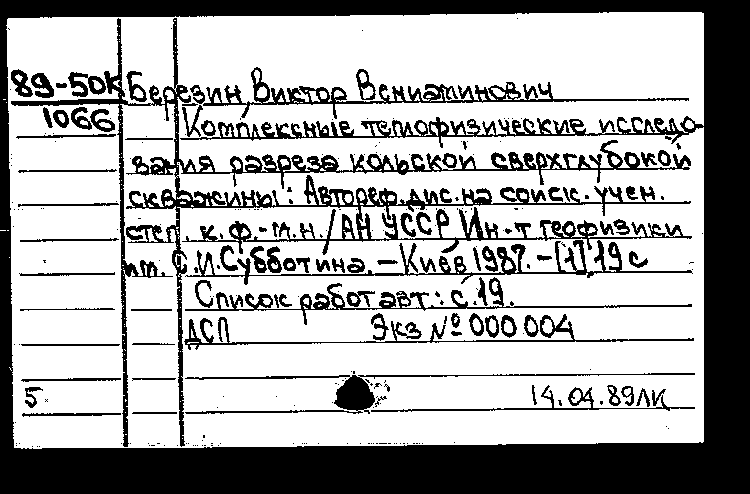 89-50К Березин, Виктор Вениаминович
1066 Комплексные теплофизические исследо-
вания разреза кольской сверхглубокой
скважины: Автореф. дис. на соиск. учен.
степ. к. ф.-м.н. / АН УССР Ин-т геофизики
им. С.И. Субботина. – Киев 1987. – [1], 19 с
Список работ авт.: с. 19.
ДСП Экз № 000004
5 14.04.89 ЛК